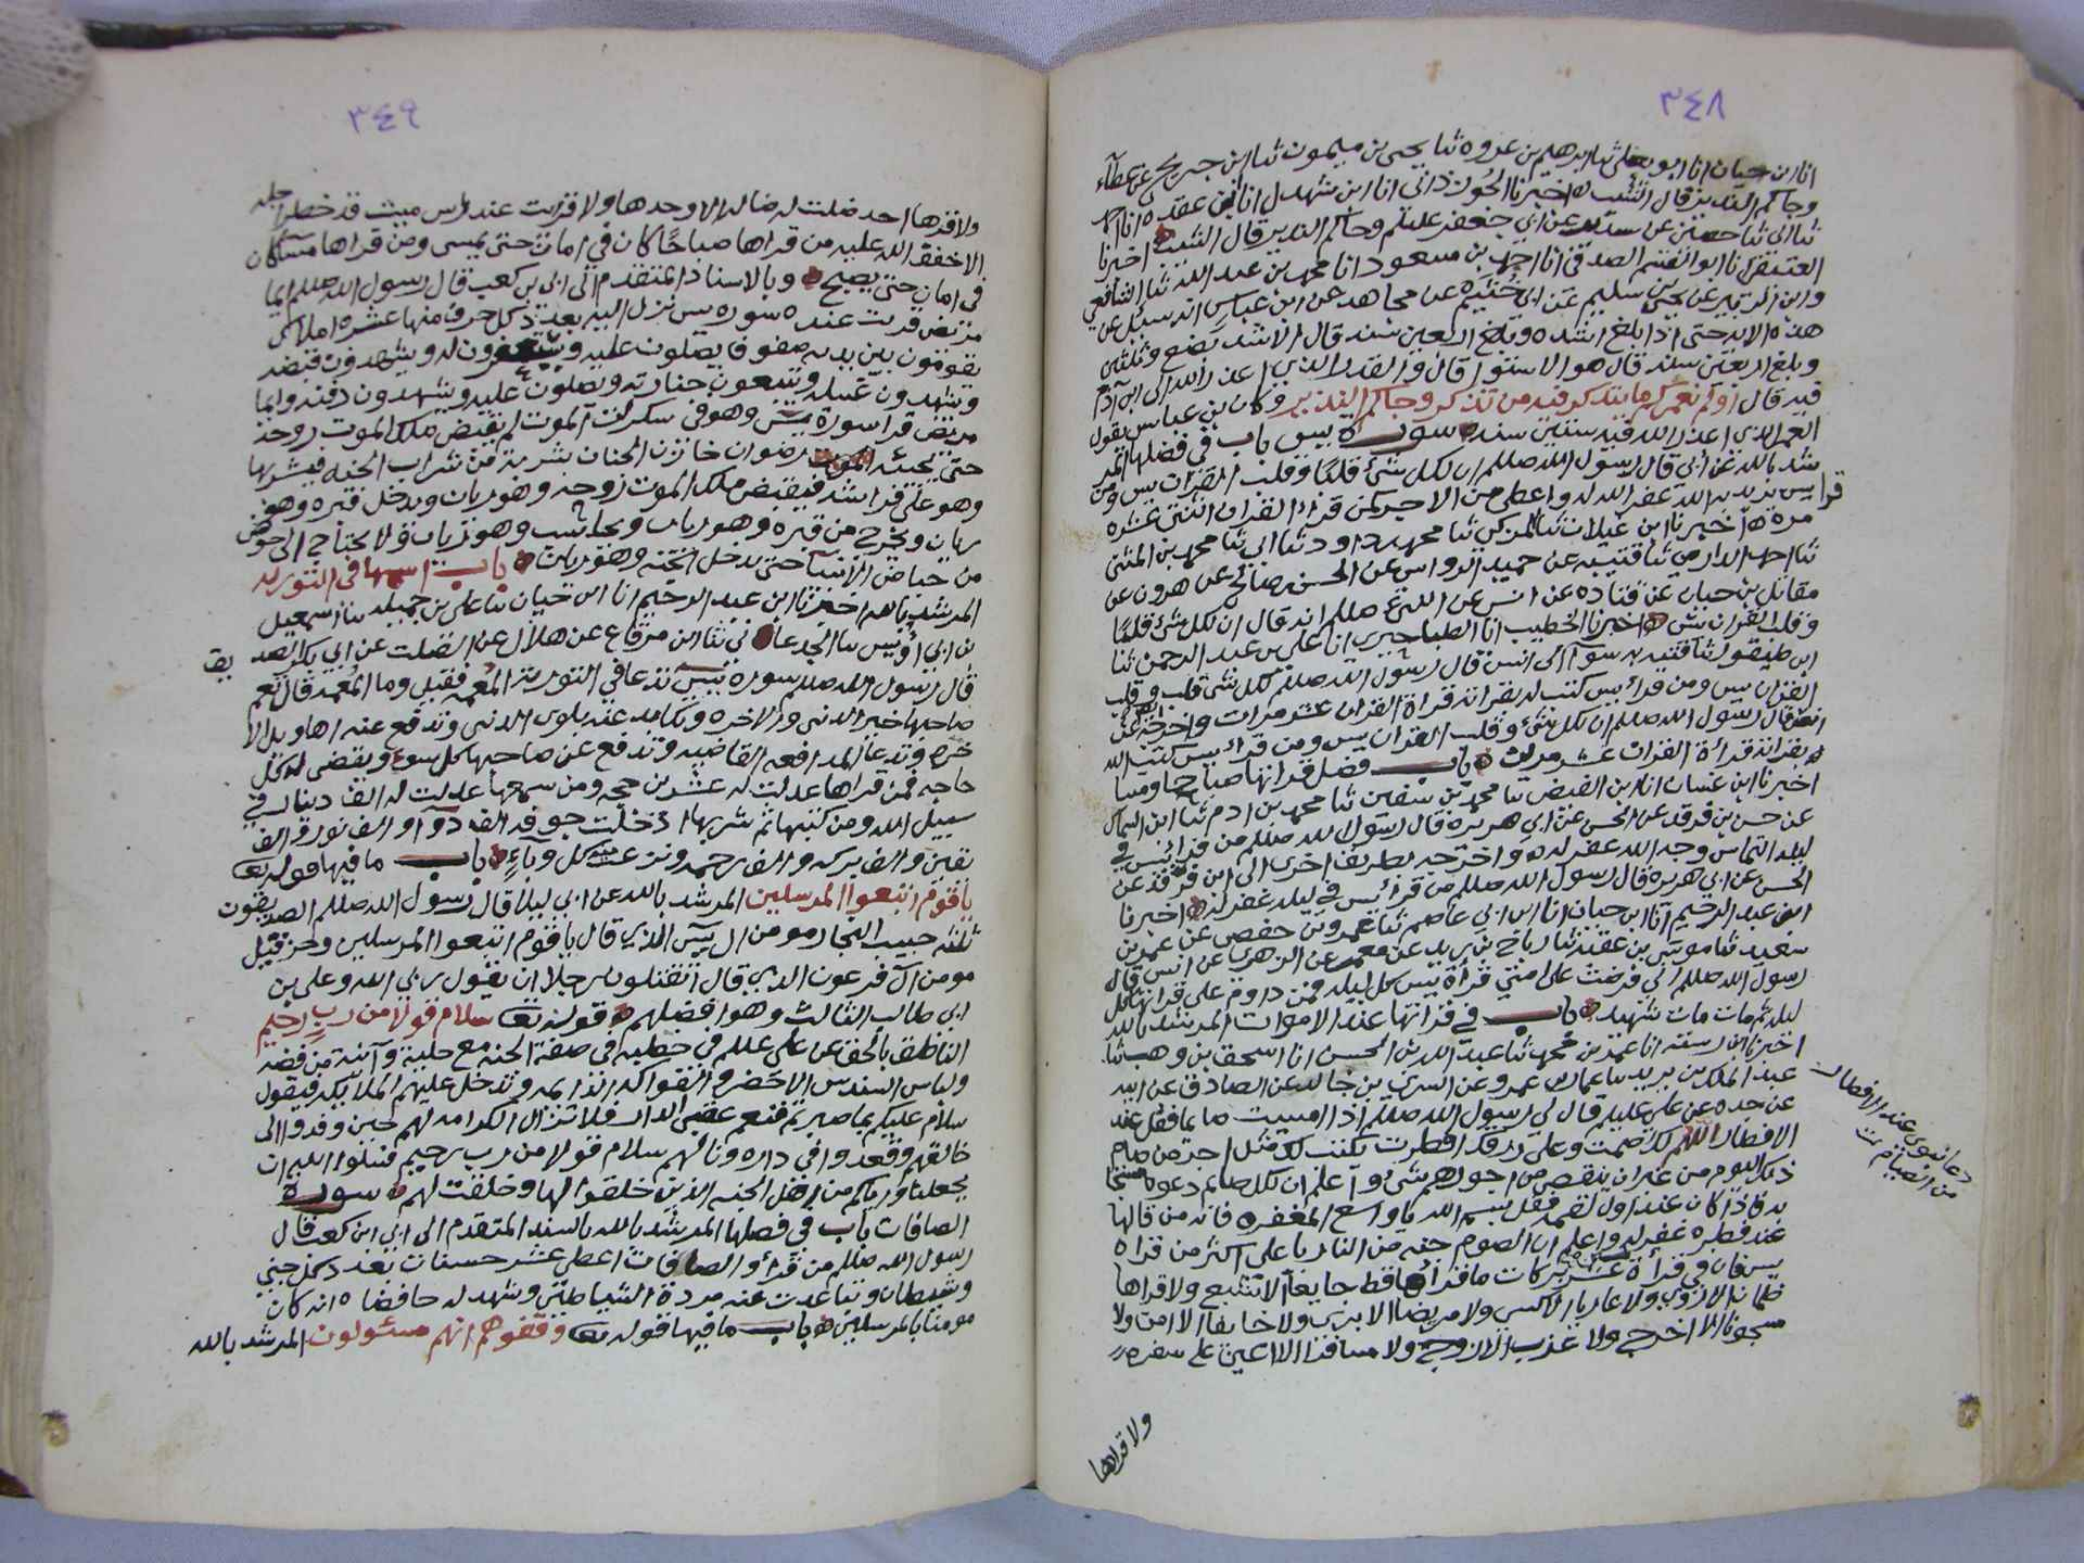 ٣٤٨
انا ابن حيان انا ابو يعلى ثنا ابرهيم بن عروه ثنا يحيى بن ميمون ثنا ابن جريج عن عطآء
وجاكم النذير قال الشيب اخبرنا الجوزذاني انا ابن شهدل انا ابن عقده انا احمد
ثنا ابي ثنا حصين عن عن ابي جعفر عليلم وجاكم النذير قال الشيب اخبرنا
العتيقي انا ابو القسم الصدفي انا احمد بن مسعود انا محمد بن عبد الله ثنا الشافعي
وابن الزبير عن يحيى بن سليم عن ابن خثيم عن مجاهد عن ابن عباس انه سئل عن
هذه الايه حتى اذا بلغ اشده وبلغ اربعين سنه قال الاشد بضع وثلثين
وبلغ اربعين سنه قال هو الاستوا قال والقدر الذي اعذر الله الى ابن آدم
فيه قال اولم نعمركم ما يتذكر فيه من تذكر وجاكم النذير وكان بن عباس يقول
العمر الذي اعذر الله فيه ستين سنه سورة يس باب في فضلها المر
شد بالله عن ابي قال رسول الله صللم ان لكل شئ قلبًا وقلب القران يس ومن
قرا يس يريد به الله غفر الله له واعطى من الاجر كمن قراء القران اثنتي عشره
مره اخبرنا ابن غيلان ثنا المزكي ثنا محمد بن داود ثنا ابي ثنا محمد بن المثنى
ثنا احمد الدارمي ثنا قتيبه عن حميد الرواس عن الحسن بن صالح عن هرون عن
مقاتل بن حيان عن قتاده عن انس عن النبي صللم انه قال ان لكل شئ قلبًا
وقلب القران يس اخبرنا الخطيب انا الطباجيري انا علي بن عبد الرحمن ثنا
ابن طيفور ثنا قتيبه سوآ الى انس قال رسول الله صللم لكل شي قلب وقلب
القران يس ومن قراء يس كتب له بقرانه قراة القران عشر مرات واخرجه عن
انس قال رسول الله صللم ان لكل شئ وقلب القران يس ومن قراء يس كتب الله
له بقرانه قراءة القران عشر مرات باب فضل قرانها صباحا ومسا
اخبرنا ابن غسان انا ابن الفيض ثنا محمد بن سفين ثنا محمد بن ادم ثنا ابن السماك
عن حسن بن فرقد عن الحسن عن ابي هريره قال رسول الله صللم من قرا يس في
ليله التماس وجه الله غفر له واخرجه بطريق اخرى الى ابن فرقد عن
الحسن عن ابي هريره قال رسول الله صللم من قرا يس في ليله غفر له اخبرنا
ابن عبد الرحيم انا ابن حيان انا ابن ابي عاصم ثنا عمرو بن حفص عن عمر بن
سعيد ثنا موسى بن عقبه ثنا رباح بن يزيد عن معمر عن الزهري عن انس قال
رسول الله صللم اني فرضت على امتي قراة يس كل ليله فمن داوم على قراتها كل
ليله ثم مات مات شهيد باب في قراتها عند الاموات المرشد بالله
اخبرنا ابن رسته انا عمر بن محمد ثنا عبد الله بن الحسن انا اسحق بن وهب ثنا
عبد الملك بن يزيد ثنا عمار بن عمرو عن السري بن خالد عن الصادق عن ابيه
عن جده عن علي عليلم قال لي رسول الله صللم اذا امسيت صايما فقل عند
الافطار اللهم لك صمت وعلى رزقك افطرت يكتب لك مثل اجر من صام
ذلك اليوم من غير ان ينقص من اجورهم شئ واعلم ان لكل صايم دعوه مستجا
به فاذا كان عند اول لقمه فقل بسم الله يا واسع المغفره فانه من قالها
عند فطره غفر له واعلم ان الصوم جنه من النار يا علي اكثر من قراه
يس فان في قرأة عشر بركات ما قراها قط جايعا الا شبع ولا قراها
ظمان الا روي ولا عاريا الا كسي ولا مريضا الا بري ولا خايفا الا امن ولا
مسجونا الا اخرج ولا عزب الا تزوج ولا مسافرا الا اعين على سفره
دعا نبوي عند الافطار
من الصيام تمت
ولا قراها
٣٤٩
ولا قراها احد ضلت له ضاله الا وجدها ولا قرات عند راس ميت قد حضر اجله
الا خفف الله عليه من قراها صباحًا كان في امان حتى يمسى ومن قراها مسآ كان
في امان حتى يصبح وبالاسناد المتقدم الى ابي بن كعب قال رسول الله صللم ايما
مريض قريت عنده سوره يس نزل اليه بعدد كل حرف منها عشره املاك
يقومون بين يديه صفوفا يصلون عليه ويستغفرون له ويشهدون قبضه
ويشهدون غسله ويتبعون جنازته ويصلون عليه ويشهدون دفنه وايما
مريض قرا سورة يس وهو في سكرات الموت لم يقبض ملك الموت روحه
حتى يجيئه رضوان خازن الجنان بشربة من شراب الجنه فيشربها
وهو على فراشه فيقبض ملك الموت روحه وهو ريان ويدخل قبره وهو
ريان ويخرج من قبره وهو ريان ويحاسب وهو ريان ولا يحتاج الى حوض
من حياض الانبيآ حتى يدخل الجنه وهو ريان باب اسمها في التوريه
المرشد بالله اخبرنا ابن عبد الرحيم انا ابن حيان ثنا علي بن جميله ثنا اسمعيل
بن ابي اويس ثنا الجدعاني ثنا ابن مرقاع عن هلال عن الصلت عن ابي بكر الصد
يق
قال رسول الله صللم سوره يس تدعا في التورية المعمه فقيل وما المعمه قال تعم
صاحبها خير الدنى والاخره وتكابد عنه بلوى الدنى وتدفع عنه اهاويل الا
خره وتدعا المدافعه القاضيه وتدفع عن صاحبها كل سوء ويقضى له كل
حاجه فمن قراها عدلت له عشرين حجه ومن سمعها عدلت له الف دينار في
سبيل الله ومن كتبها ثم شربها ادخلت جوفه الف دوآ والف نور والف
يقين والف بركه والف رحمه ونزعت منه كل وبآء باب ما فيها قوله تعا
يا قوم اتبعوا المرسلين المرشد بالله عن ابي ليلا قال رسول الله صللم الصديقون
ثلثه حبيب النجار مومن ال يس الذي قال يا قوم اتبعوا المرسلين وحزقيل
مومن آل فرعون الذي قال اتقتلون رجلا ان يقول ربي الله وعلي بن
ابي طالب الثالث وهو افضلهم قوله تعا سلام قولا من رب رحيم
الناطق بالحق عن علي عللم في خطبه في صفة الجنه مع حلية وآنية من فضه
ولباس السندس الاخضر والفواكه الدايمه وتدخل عليهم الملآيكه فيقول
سلام عليكم بما صبرتم فنعم عقبى الدار فلا تزال الكرامه لهم حين وفدوا الى
خالقهم وقعدوا في داره ونالهم سلام قولا من رب رحيم فسلوا الله ان
يجعلنا واياكم من اهل الجنه الذين خلقوا لها وخلقت لهم سورة
الصافات باب في فصلها المرشد بالله بالسند المتقدم الى ابي ابن كعب قال
رسول الله صللم من قراء والصافات اعطي عشر حسنات بعدد كل جني
وشيطان وتباعدت عنه مردة الشياطين وشهد له حافضاه انه كان
مومنا بالمرسلين باب ما فيها قوله تعا وقفوهم انهم مسئولون المرشد بالله